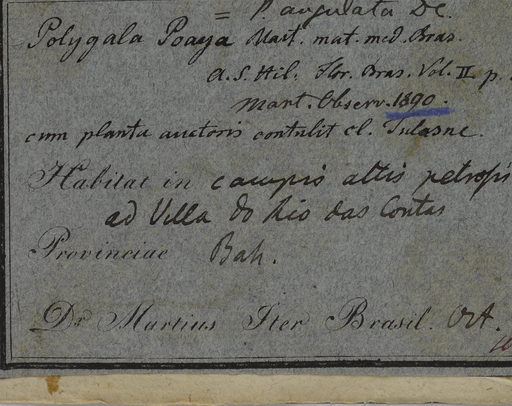 = P. angulata DC.
Polygala Poaya Mart. mat. med. Bras.
A. S. Hil. Flor. Bras. Vol. II p.
Mart. Observ. 1890.
cum planta auctoris contulit cl. Tulasne.
Habitat in campis altis petrosis
ad Villa do Rio das Contas
Provinciae Bah.
Dr Martius Iter Brasil. Oct.